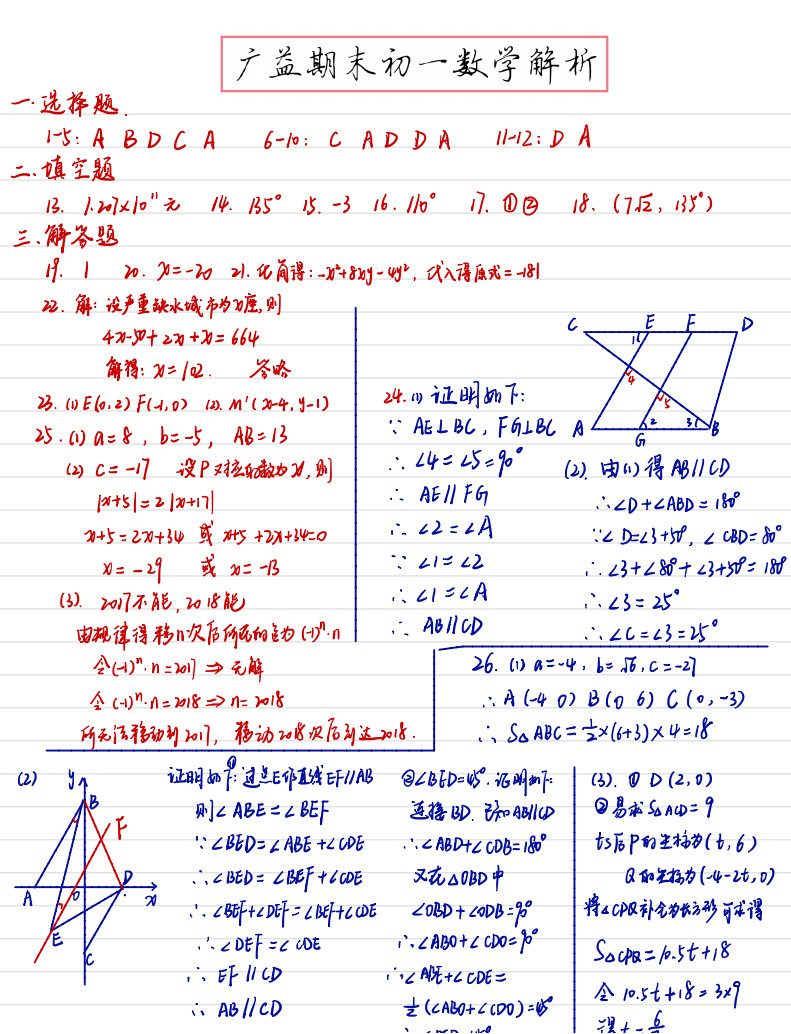 广益期末初一数学解析
一.选择题.
1-5: A B D C A  6-10: C A D D A  11-12: D A
二.填空题
13. 1.207×10¹¹元  14. 135°  15. -3  16. 110°  17. ①②  18. (7√2, 135°)
三.解答题
19. 1  20. x=-20  21. 化简得: -x²+8xy-4y², 代入得原式=-181
22. 解: 设严重缺水城市为x座,则
4x-50+2x+x=664
解得: x=102. 答略
23. (1) E(0,2) F(-1,0) (2). M'(x-4, y-1)
25. (1) a=8, b=-5, AB=13
(2) C=-17 设P对应的数为x,则
|x+5|=2|x+17|
x+5=2x+34 或 x+5+2x+34=0
x=-29 或 x=-13
(3). 2017不能,2018能
由规律得移n次后所在的点为(-1)ⁿ·n
令(-1)ⁿ·n=2017 ⇒ 无解
令(-1)ⁿ·n=2018 ⇒ n=2018
所无法移动到2017, 移动2018次后到达2018.
C E F D
1 4 5
A G 2 3 B
24. (1) 证明如下:
∵ AE⊥BC, FG⊥BC
∴ ∠4=∠5=90°
∴ AE∥FG
∴ ∠2=∠A
∵ ∠1=∠2
∴ ∠1=∠A
∴ AB∥CD
(2). 由(1)得AB∥CD
∴∠D+∠ABD=180°
∵∠D=∠3+50°, ∠CBD=80°
∴∠3+∠80°+∠3+50°=180°
∴∠3=25°
∴∠C=∠3=25°
26. (1) a=-4, b=√6, c=-27
∴ A(-4 0) B(0 6) C(0,-3)
∴ S△ABC=½×(6+3)×4=18
(2)
y B F
A O D x
E C
证明如下: ①过点E作直线EF∥AB
则∠ABE=∠BEF
∵∠BED=∠ABE+∠CDE
∴∠BED=∠BEF+∠CDE
∴∠BEF+∠DEF=∠BEF+∠CDE
∴∠DEF=∠CDE
∴ EF∥CD
∴ AB∥CD
②∠BED=45°. 证明如下:
连接BD. 已知AB∥CD
∴∠ABD+∠CDB=180°
又在△OBD中
∠OBD+∠ODB=90°
∴∠ABO+∠CDO=90°
∴∠ABE+∠CDE=
½(∠ABO+∠CDO)=45°
(3). ① D(2,0)
②易求S△ACD=9
ts后P的坐标为(t,6)
Q的坐标为(-4-2t,0)
将△CPQ补全为长方形可求得
S△CPQ=10.5t+18
令10.5t+18=3×9